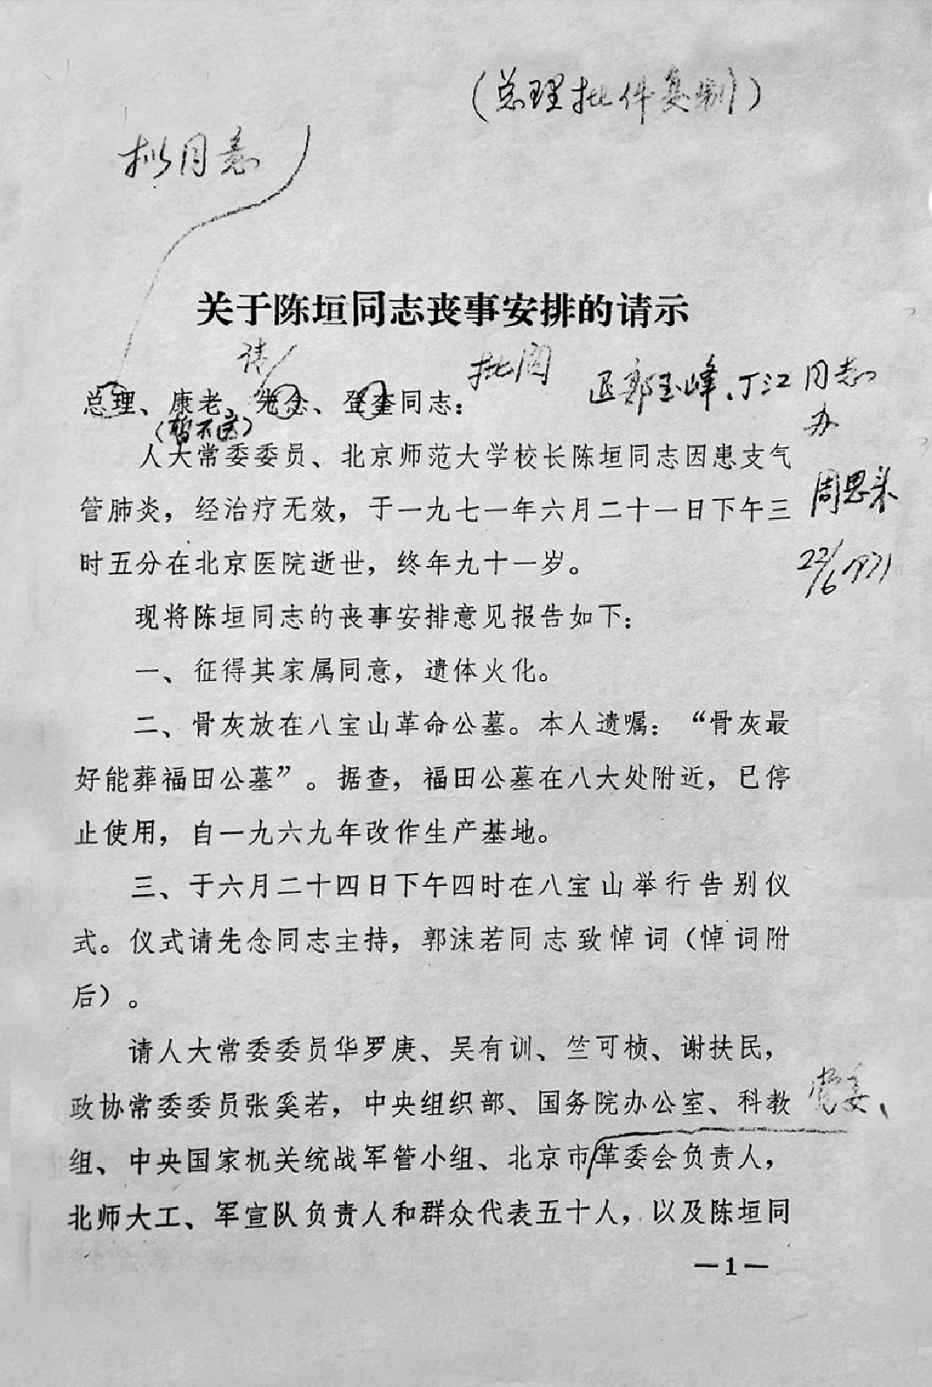 （总理批件复制）
拟同意
关于陈垣同志丧事安排的请示
请
批阅
退郭玉峰、丁江同志
办
总理、康老、先念、登奎同志：
（暂不送）
周恩来
22/6 1971
人大常委委员、北京师范大学校长陈垣同志因患支气
管肺炎，经治疗无效，于一九七一年六月二十一日下午三
时五分在北京医院逝世，终年九十一岁。
现将陈垣同志的丧事安排意见报告如下：
一、征得其家属同意，遗体火化。
二、骨灰放在八宝山革命公墓。本人遗嘱：“骨灰最
好能葬福田公墓”。据查，福田公墓在八大处附近，已停
止使用，自一九六九年改作生产基地。
三、于六月二十四日下午四时在八宝山举行告别仪
式。仪式请先念同志主持，郭沫若同志致悼词（悼词附
后）。
请人大常委委员华罗庚、吴有训、竺可桢、谢扶民，
政协常委委员张奚若，中央组织部、国务院办公室、科教
党委、
组、中央国家机关统战军管小组、北京市革委会负责人，
北师大工、军宣队负责人和群众代表五十人，以及陈垣同
—1—